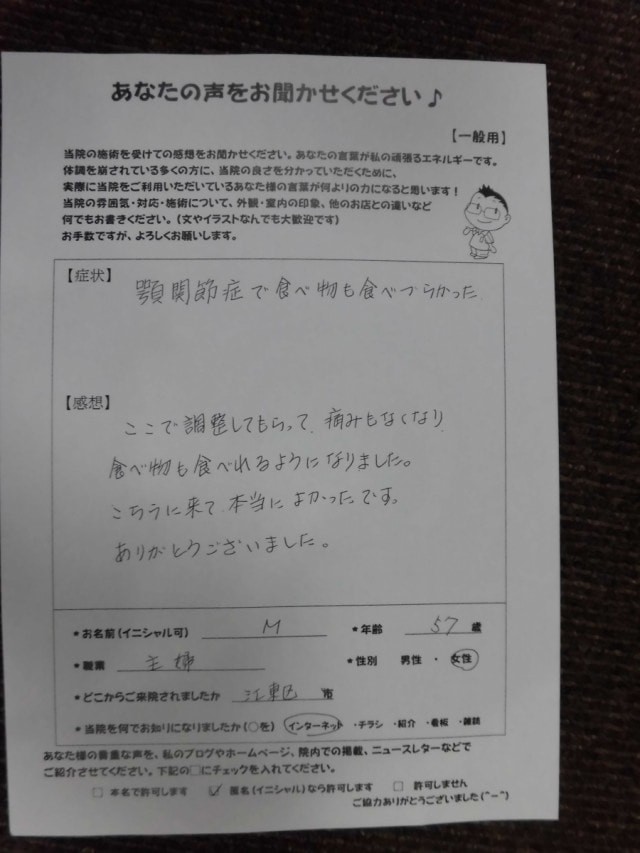 あなたの声をお聞かせください♪
【一般用】
当院の施術を受けての感想をお聞かせください。あなたの言葉が私の頑張るエネルギーです。
体調を崩されている多くの方に、当院の良さを分かっていただくために、
実際に当院をご利用いただいているあなた様の言葉が何よりの力になると思います！
当院の雰囲気・対応・施術について、外観・室内の印象、他のお店との違いなど
何でもお書きください。（文やイラストなんでも大歓迎です）
お手数ですが、よろしくお願いします。
【症状】
顎関節症で食べ物も食べづらかった
【感想】
ここで調整してもらって、痛みもなくなり
食べ物も食べれるようになりました。
こちらに来て、本当によかったです。
ありがとうございました。
＊お名前（イニシャル可） M ＊年齢 57 歳
＊職業 主婦 ＊性別 男性 ・ 女性
＊どこからご来院されましたか 江東区 市
＊当院を何でお知りになりましたか（○を） インターネット ・チラシ ・紹介 ・看板 ・雑誌
あなた様の貴重な声を、私のブログやホームページ、院内での掲載、ニュースレターなどで
ご紹介させてください。下記の□にチェックを入れてください。
□ 本名で許可します ☑ 匿名（イニシャル）なら許可します □ 許可しません
ご協力ありがとうございました（＾－＾）